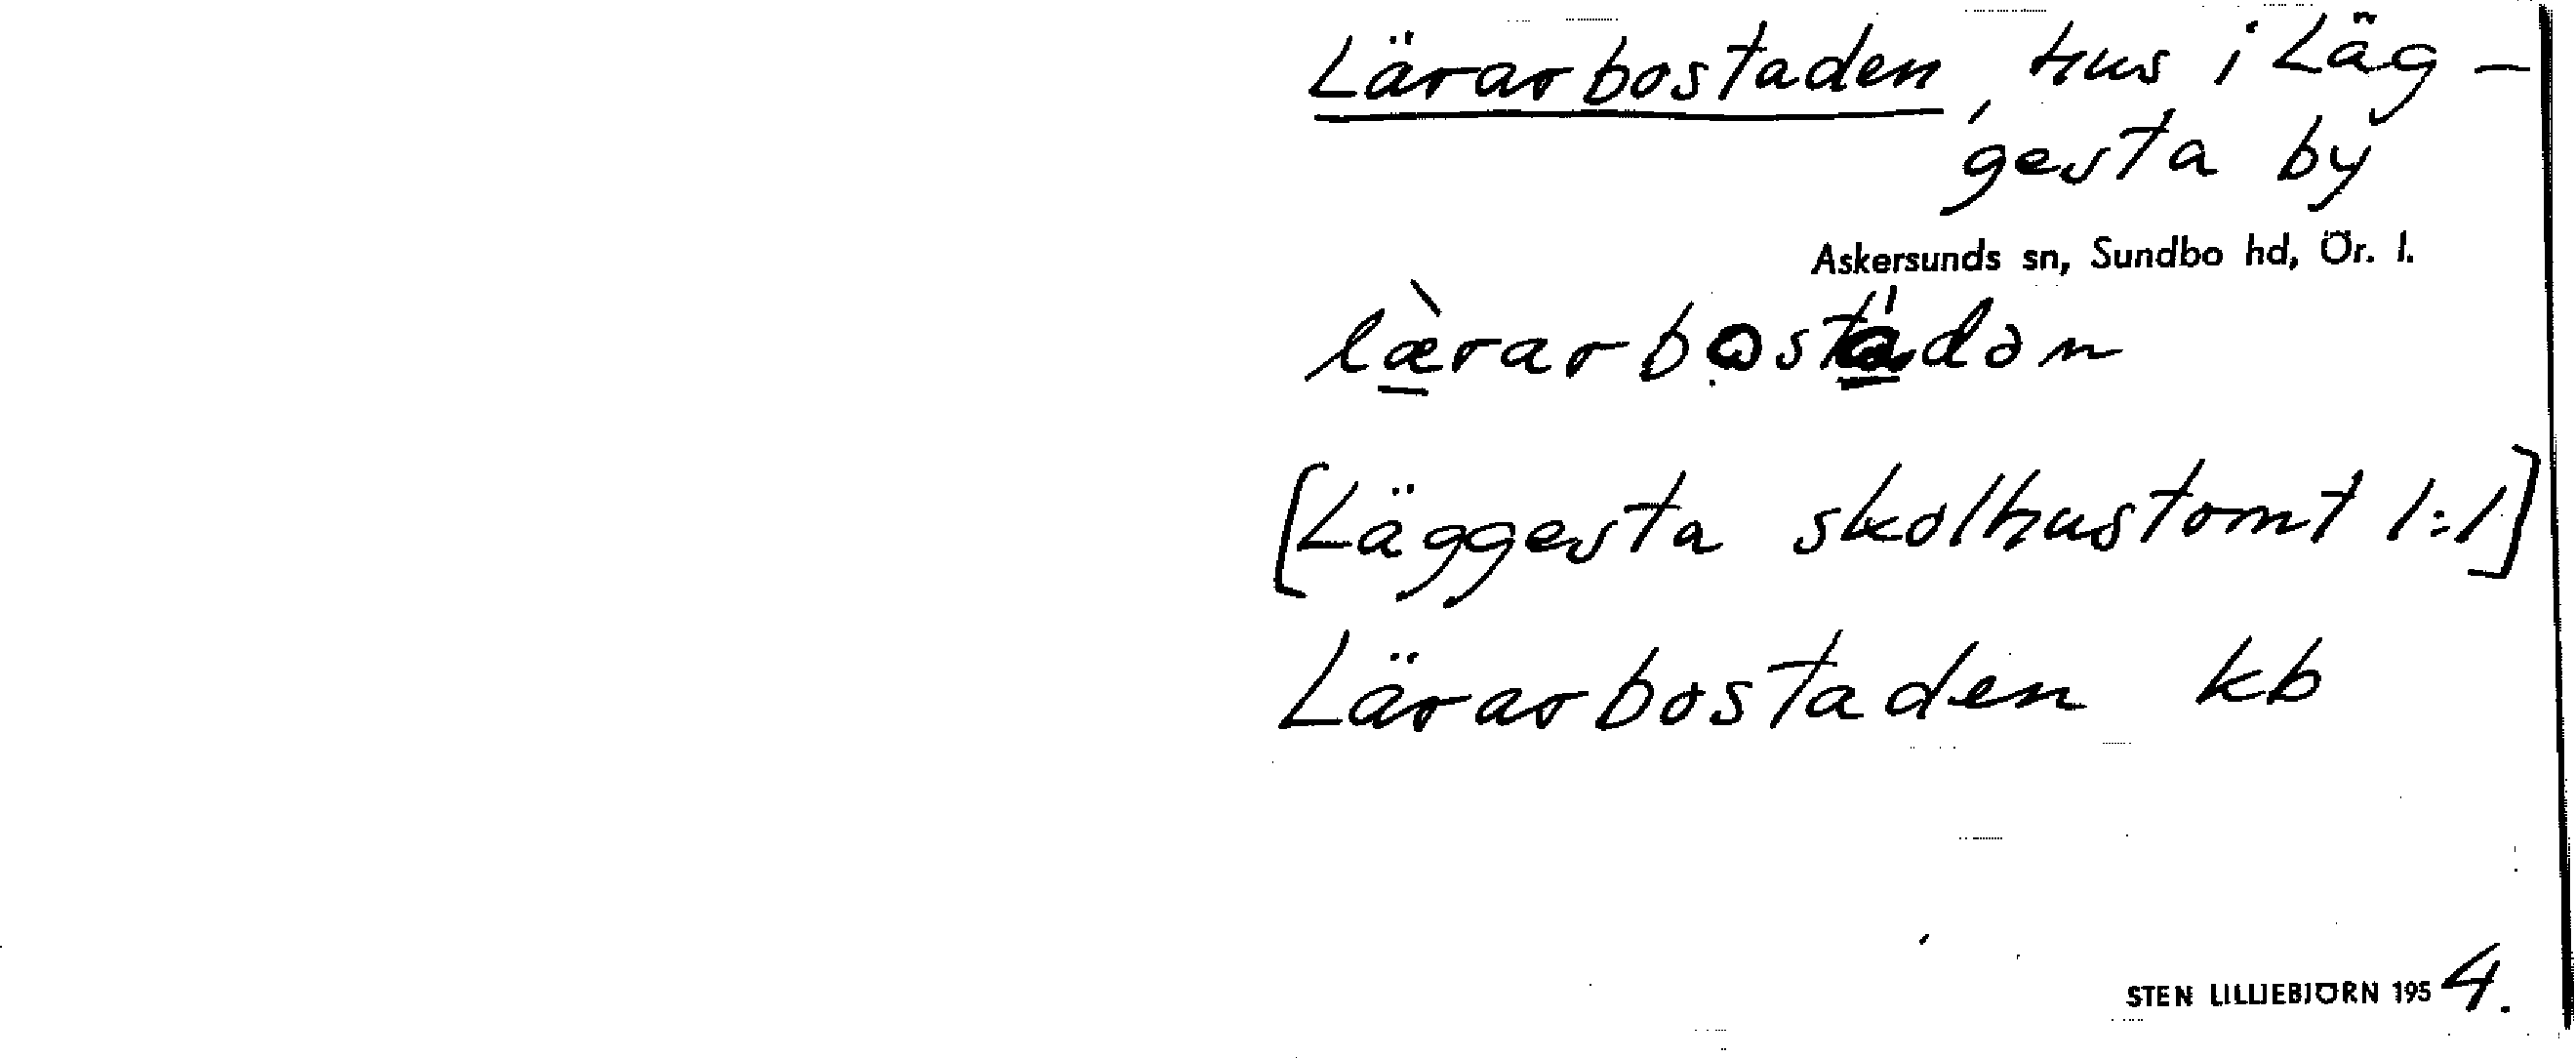 Lärarbostaden, hus i Läg-
gesta by
Askersunds sn, Sundbo hd, Ör. l.
læ̀rarbostádən
[Läggesta skolhustomt 1:1]
Lärarbostaden kb
STEN LILLIEBJÖRN 1954.